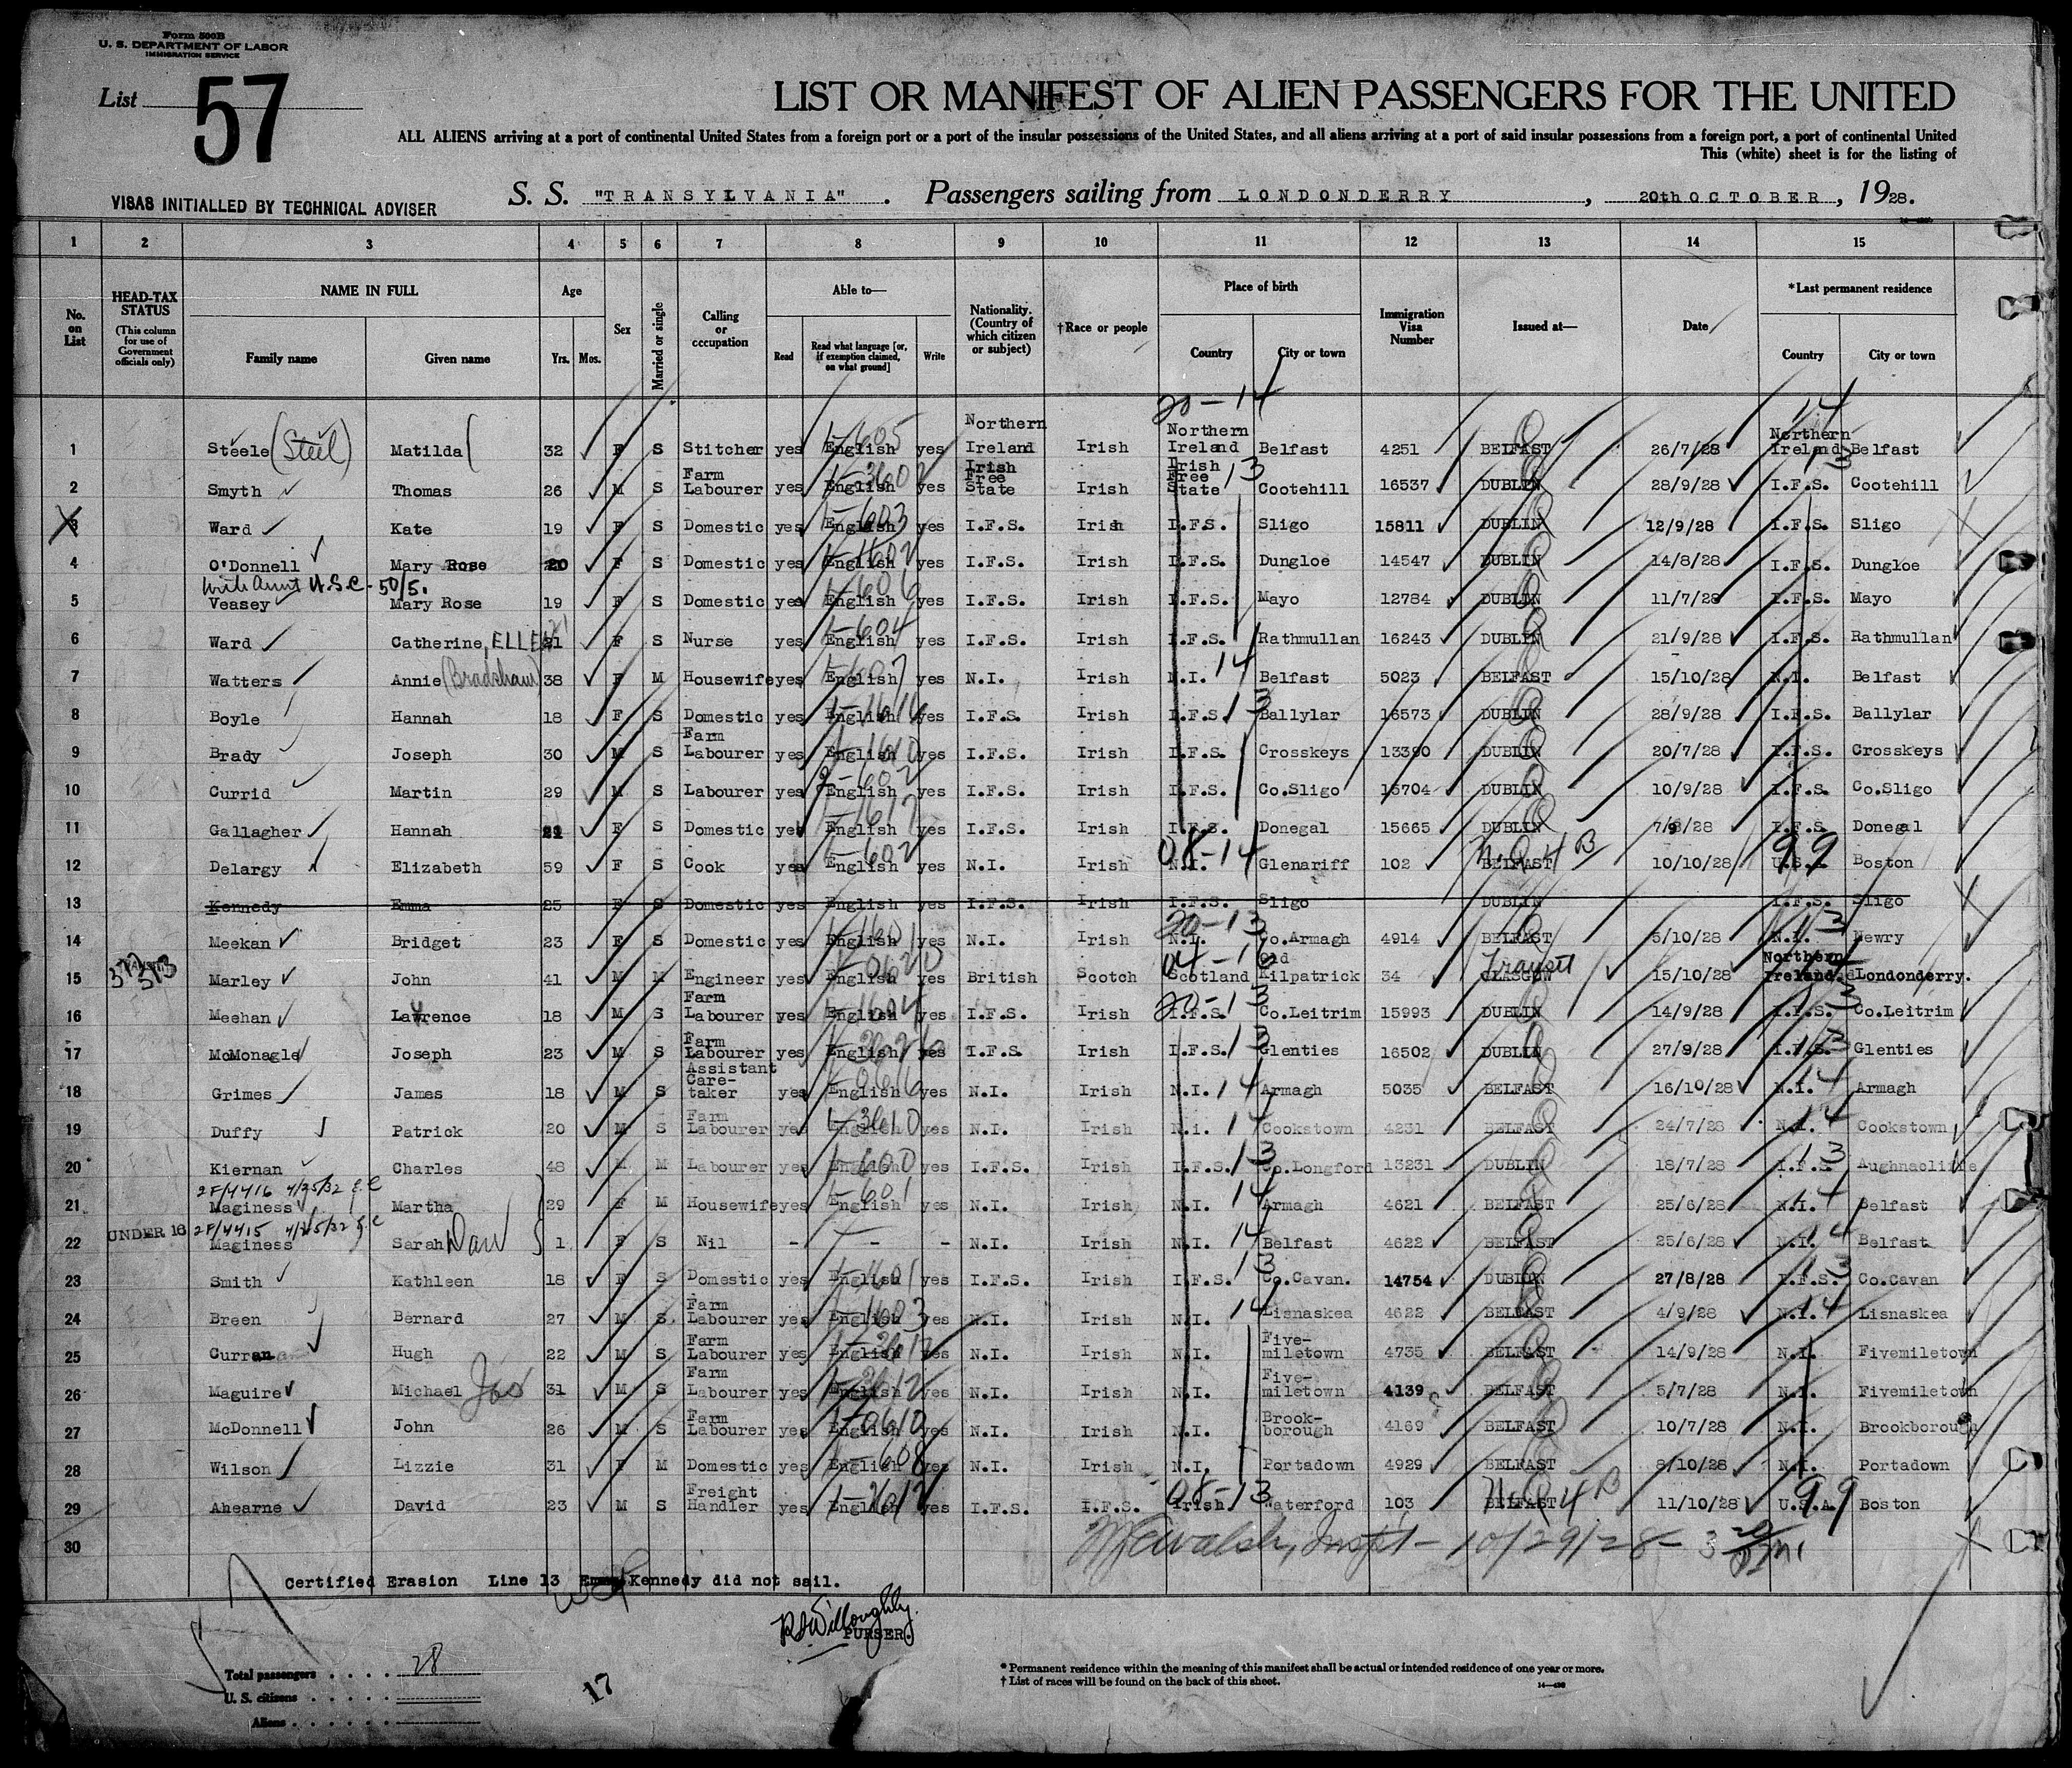 Form 500B
U. S. DEPARTMENT OF LABOR
IMMIGRATION SERVICE
List 57
LIST OR MANIFEST OF ALIEN PASSENGERS FOR THE UNITED
ALL ALIENS arriving at a port of continental United States from a foreign port or a port of the insular possessions of the United States, and all aliens arriving at a port of said insular possessions from a foreign port, a port of continental United
This (white) sheet is for the listing of
VISAS INITIALLED BY TECHNICAL ADVISER
S. S. "TRANSYLVANIA". Passengers sailing from LONDONDERRY, 20th OCTOBER, 1928.
1 2 3 4 5 6 7 8 9 10 11 12 13 14 15
No. on List
HEAD-TAX STATUS (This column for use of Government officials only)
NAME IN FULL Family name Given name
Age Yrs. Mos.
Sex
Married or single
Calling or occupation
Able to— Read Read what language [or, if exemption claimed, on what ground] Write
Nationality. (Country of which citizen or subject)
†Race or people
Place of birth Country City or town
Immigration Visa Number
Issued at—
Date
*Last permanent residence Country City or town
20-14 14
1 Steele (Steel) Matilda 32 F S Stitcher yes English 1-605 yes Northern Ireland Irish Northern Ireland Belfast 4251 BELFAST 26/7/28 Northern Ireland Belfast
2 Smyth Thomas 26 M S Farm Labourer yes English yes Irish Free State Irish Irish Free State 13 Cootehill 16537 DUBLIN 28/9/28 I.F.S. 13 Cootehill
3 Ward Kate 19 F S Domestic yes English 1-603 yes I.F.S. Irish I.F.S. Sligo 15811 DUBLIN 12/9/28 I.F.S. Sligo
4 O'Donnell Mary Rose 20 F S Domestic yes English yes I.F.S. Irish I.F.S. Dungloe 14547 DUBLIN 14/8/28 I.F.S. Dungloe
with Aunt U.S.C - 50/5.
5 Veasey Mary Rose 19 F S Domestic yes English 1-606 yes I.F.S. Irish I.F.S. Mayo 12784 DUBLIN 11/7/28 I.F.S. Mayo
6 Ward Catherine, ELLEN 21 F S Nurse yes English 1-604 yes I.F.S. Irish I.F.S. Rathmullan 16243 DUBLIN 21/9/28 I.F.S. Rathmullan
7 Watters Annie (Bradshaw) 38 F M Housewife yes English yes N.I. Irish N.I. 14 Belfast 5023 BELFAST 15/10/28 N.I. Belfast
8 Boyle Hannah 18 F S Domestic yes English yes I.F.S. Irish I.F.S. 13 Ballylar 16573 DUBLIN 28/9/28 I.F.S. Ballylar
9 Brady Joseph 30 M S Farm Labourer yes English yes I.F.S. Irish I.F.S. Crosskeys 13390 DUBLIN 20/7/28 I.F.S. Crosskeys
10 Currid Martin 29 M S Labourer yes English 2-602 yes I.F.S. Irish I.F.S. Co.Sligo 15704 DUBLIN 10/9/28 I.F.S. Co.Sligo
11 Gallagher Hannah 21 F S Domestic yes English yes I.F.S. Irish I.F.S. Donegal 15665 DUBLIN 7/9/28 I.F.S. Donegal
12 Delargy Elizabeth 59 F S Cook yes English 1-602 yes N.I. Irish 08-14 N.I. Glenariff 102 N.Q 4 B BELFAST 10/10/28 99 U.S.A. Boston
13 Kennedy Emma 25 F S Domestic yes English yes I.F.S. Irish I.F.S. Sligo DUBLIN I.F.S. Sligo
14 Meekan Bridget 23 F S Domestic yes English yes N.I. Irish 20-13 N.I. Co.Armagh 4914 BELFAST 5/10/28 N.I. 13 Newry
15 Marley John 41 M M Engineer yes English yes British Scotch 04-16 Scotland Old Kilpatrick 34 Transit GLASGOW 15/10/28 Northern Ireland. Londonderry.
16 Meehan Lawrence 18 M S Farm Labourer yes English 1-604 yes I.F.S. Irish 20-13 I.F.S. Co.Leitrim 15993 DUBLIN 14/9/28 I.F.S. 13 Co.Leitrim
17 McMonagle Joseph 23 M S Farm Labourer yes English yes I.F.S. Irish I.F.S. 13 Glenties 16502 DUBLIN 27/9/28 I.F.S. 13 Glenties
18 Grimes James 18 M S Assistant Care-taker yes English yes N.I. Irish N.I. 14 Armagh 5035 BELFAST 16/10/28 N.I. 14 Armagh
19 Duffy Patrick 20 M S Farm Labourer yes English yes N.I. Irish N.i. 14 Cookstown 4231 BELFAST 24/7/28 N.I. 14 Cookstown
20 Kiernan Charles 48 M M Labourer yes English 1-600 yes I.F.S. Irish I.F.S. 13 Co.Longford 13231 DUBLIN 18/7/28 I.F.S. 13 Aughnacliffe
2F/4416 4/25/32 g.c
21 Maginess Martha 29 F M Housewife yes English 1-601 yes N.I. Irish N.I. 14 Armagh 4621 BELFAST 25/6/28 N.I. 14 Belfast
UNDER 16 2F/4415 4/25/32 g.c
22 Maginess Sarah Daw 1 F S Nil - - - N.I. Irish N.I. 14 Belfast 4622 BELFAST 25/6/28 N.I. 14 Belfast
23 Smith Kathleen 18 F S Domestic yes English 1-601 yes I.F.S. Irish I.F.S. 13 Co.Cavan. 14754 DUBLIN 27/8/28 I.F.S. 13 Co.Cavan
24 Breen Bernard 27 M S. Farm Labourer yes English 1-603 yes N.I. Irish N.I. 14 Lisnaskea 4622 BELFAST 4/9/28 N.I. 14 Lisnaskea
25 Curran Hugh 22 M S Farm Labourer yes English yes N.I. Irish N.I. Five-miletown 4735 BELFAST 14/9/28 N.I. Fivemiletown
26 Maguire Michael Jos 31 M S Farm Labourer yes English yes N.I. Irish N.I. Five-miletown 4139 BELFAST 5/7/28 N.I. Fivemiletown
27 McDonnell John 26 M S Farm Labourer yes English yes N.I. Irish N.I. Brook-borough 4169 BELFAST 10/7/28 N.I. Brookborough
28 Wilson Lizzie 31 F M Domestic yes English 1-608 yes N.I. Irish N.I. Portadown 4929 BELFAST 8/10/28 N.I. Portadown
29 Ahearne David 23 M S Freight Handler yes English yes I.F.S. I.F.S. 08-13 Irish Waterford 103 N.Q 4 B BELFAST 11/10/28 U.S.A. 99 Boston
30 Walsh, Inspt - 10/29/28 - 3 pm
Certified Erasion Line 13 Emma Kennedy did not sail.
Willoughby.
PURSER.
Total passengers . . . . 28
U. S. citizens . . . . .
Aliens . . . . . .
17
* Permanent residence within the meaning of this manifest shall be actual or intended residence of one year or more.
† List of races will be found on the back of this sheet.